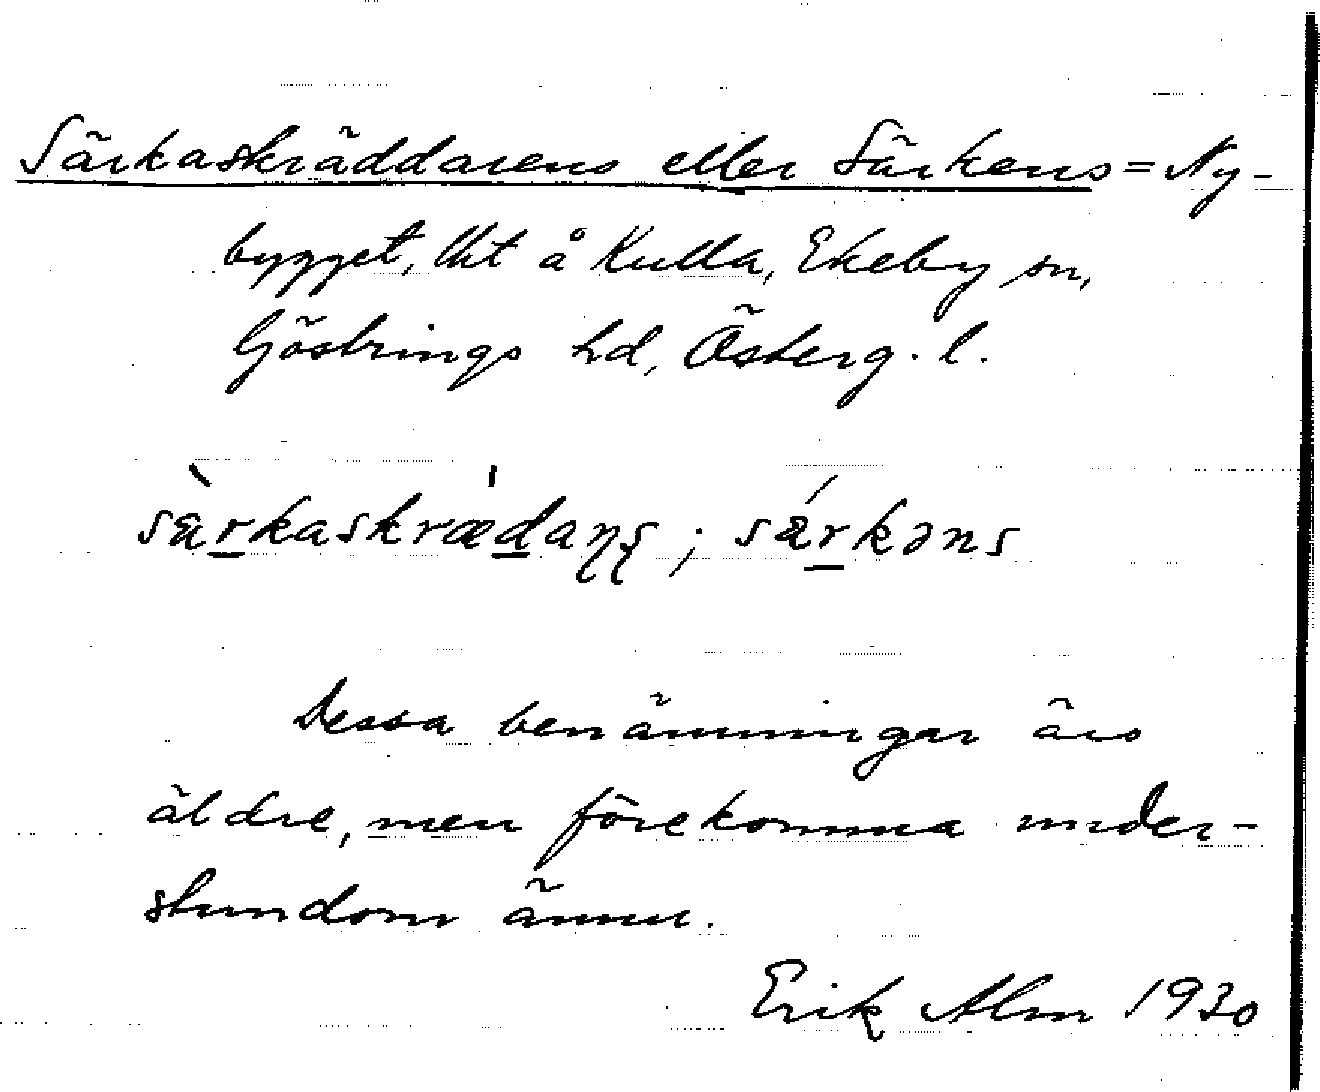 Särkaskräddarens eller Särkens = Ny-
bygget, lht å Kulla, Ekeby sn,
Göstrings hd, Österg. l.
sæ̀rkaskræ̍daṇṣ ; sǽrkəns
Dessa benämningar äro
äldre, men förekomma under-
stundom ännu.
Erik Alm 1930